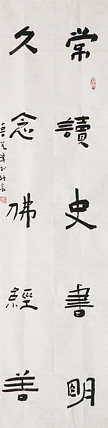 常讀史書明
久念佛經善